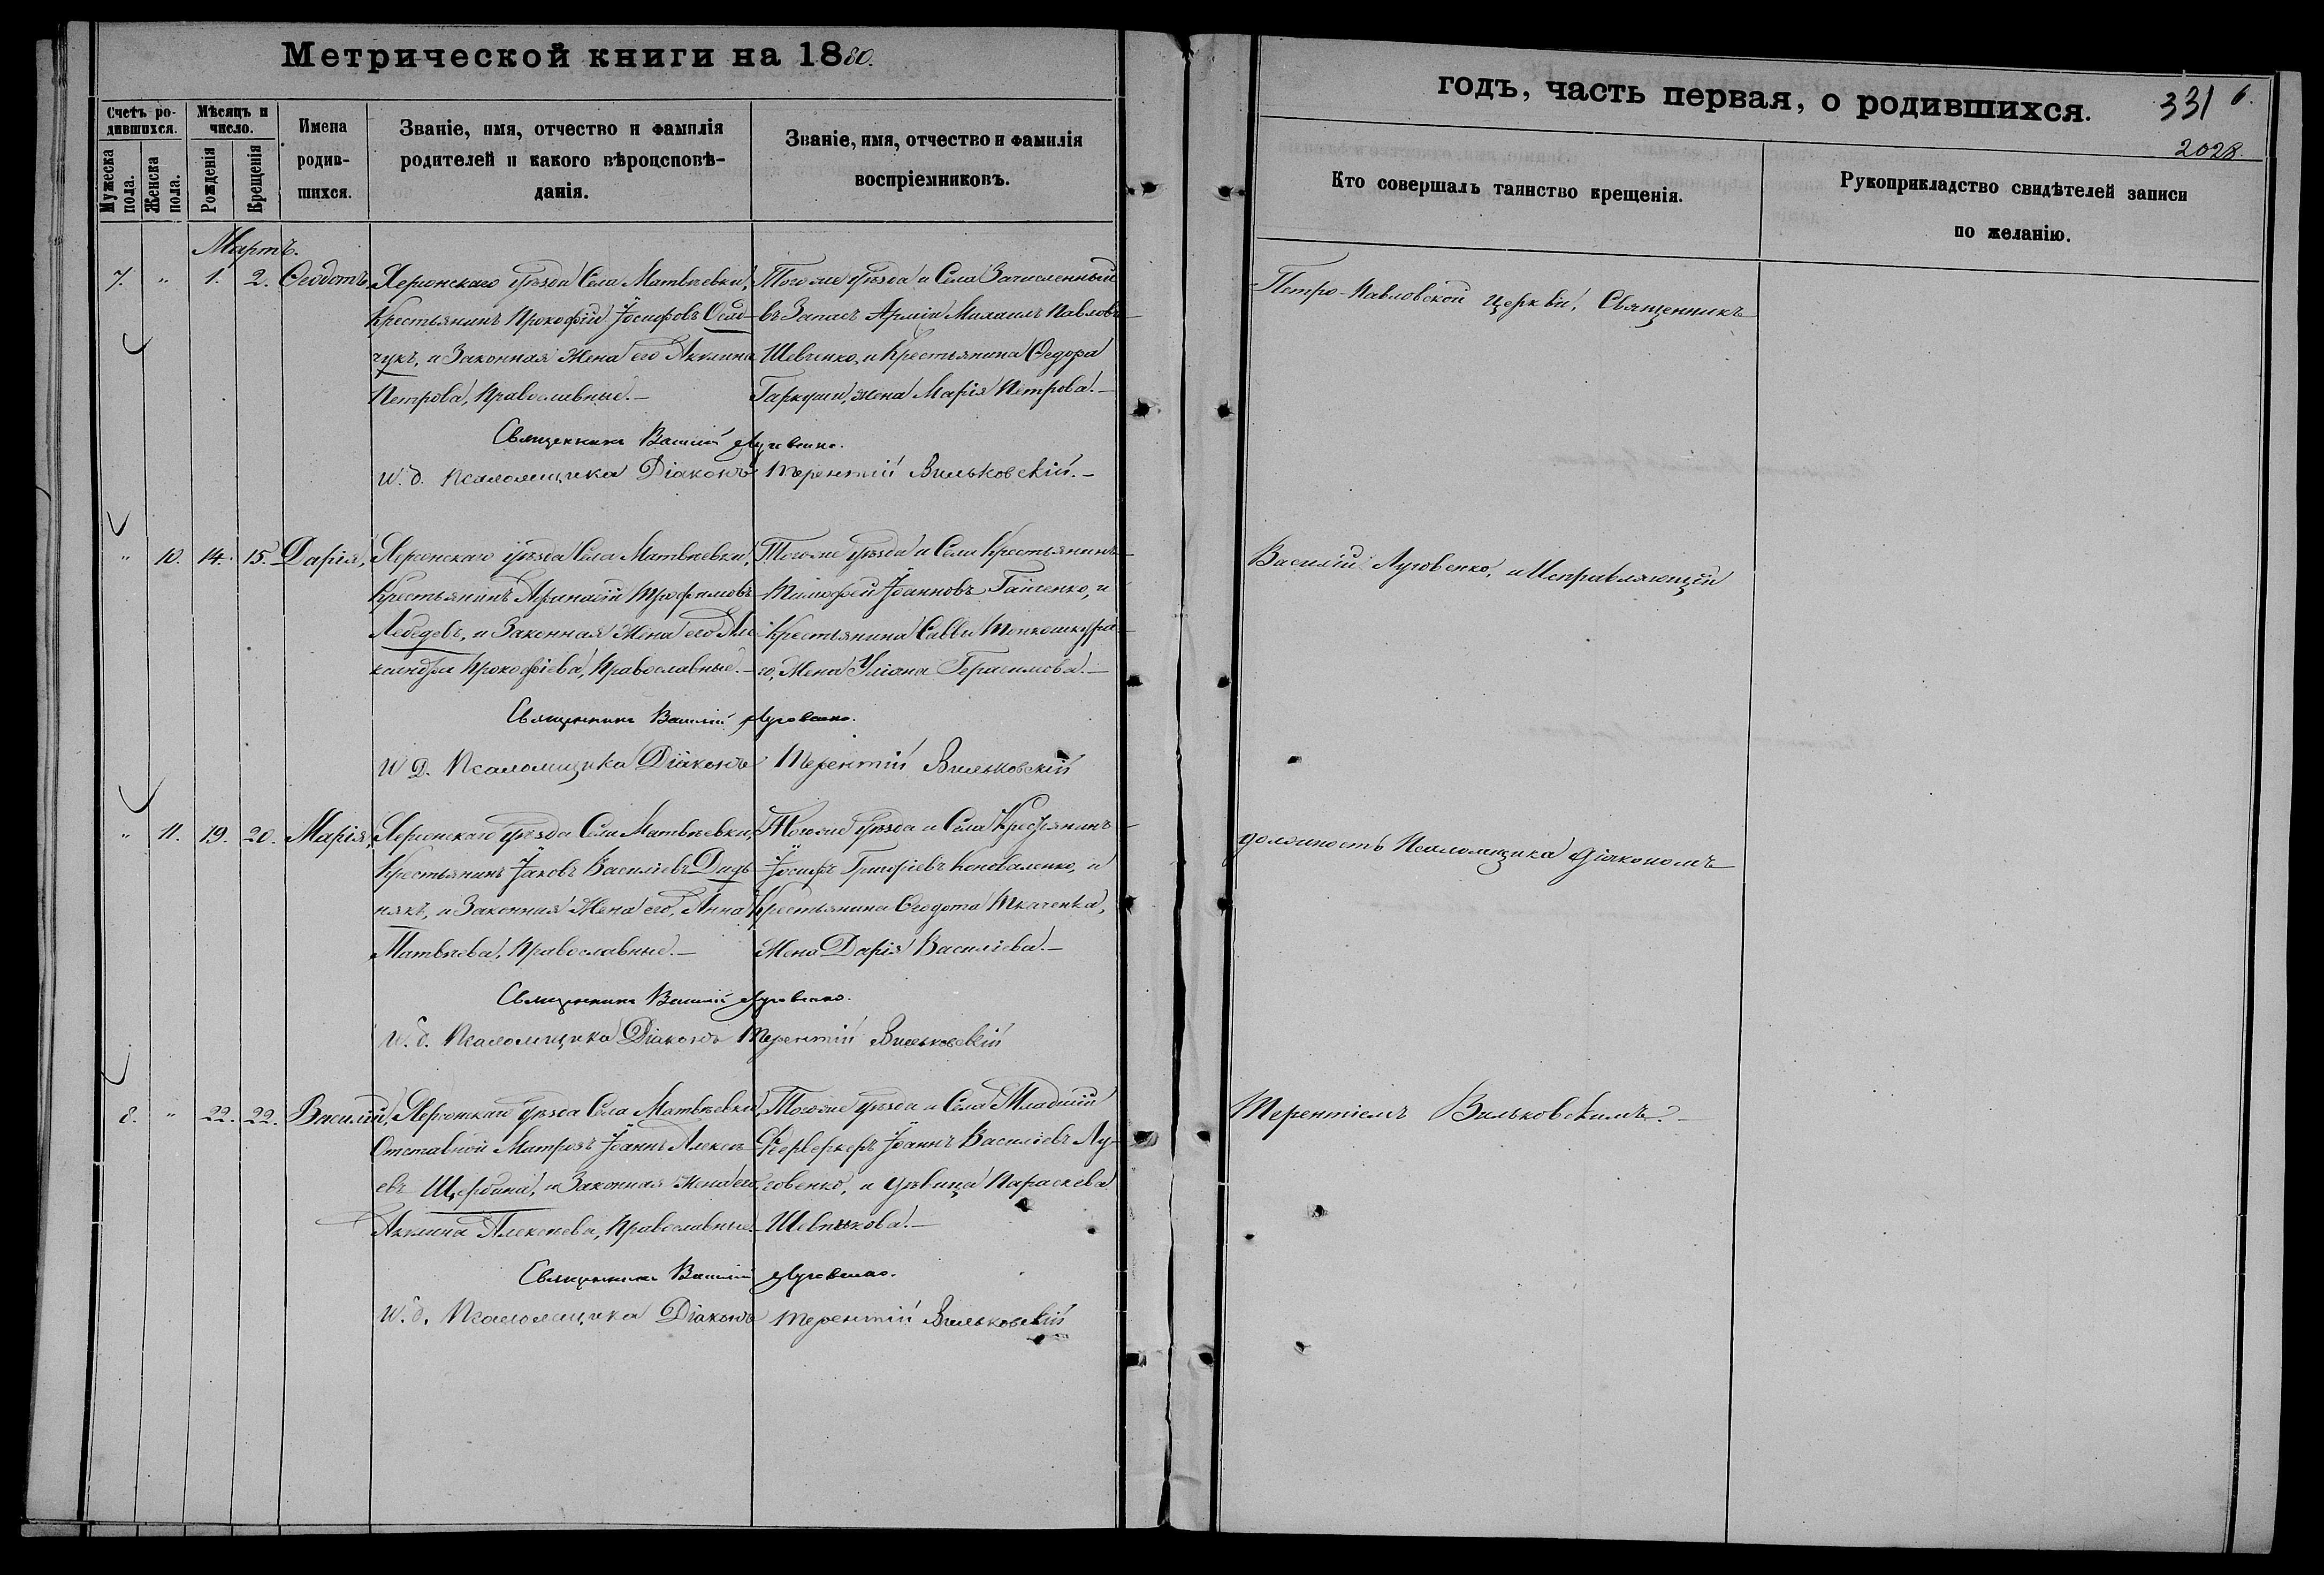 Метрической книги на 1880.
Счетъ ро-
дившихся.
Мужеска
пола.
Женска
пола.
Мѣсяцъ и
число.
Рожденія
Крещенія
Имена
родив-
шихся.
Званіе, имя, отчество и фамилія
родителей и какого вѣроисповѣ-
данія.
Званіе, имя, отчество и фамилія
воспріемниковъ.
Мартъ.
7. " 1. 2. Ѳеодотъ,
Херсонскаго Уѣзда Села Матвѣевки,
Крестьянинъ Прокофій Іосифовъ
чукъ, и Законная Жена его Акилина
Петрова, Православные.—
Тогоже Уѣзда и Села Зачисленный
въ Запасъ Арміи Михаилъ Павловъ
Шевченко, и Крестьянина Ѳедора
Гаркуши, жена Марія Петрова.—
Священникъ Василій Луговенко.
И. д. Псаломщика Діаконъ Терентій Вильковскій.—
" 10. 14. 15. Дарія,
Херсонскаго Уѣзда Села Матвѣевки,
Крестьянинъ Афанасій Трофимовъ
Лебедевъ, и Законная Жена его Але-
ксандра Прокофіева, Православные.—
Тогоже Уѣзда и Села Крестьянинъ
Тимофей Іоанновъ и
Крестьянина Саввы
го, Жена Уліана Герасимова.—
Священникъ Василій Луговенко.
И Д. Псаломщика Діаконъ Терентій Вильковскій
" 11. 19. 20. Марія,
Херсонскаго Уѣзда Села Матвѣевки,
Крестьянинъ Іаковъ Василіевъ Дидъ-
някъ, и Законная Жена его, Анна
Матвѣева, Православные.—
Тогоже Уѣзда и Села Крестьянинъ
Іосифъ Григоріевъ Коноваленко, и
Крестьянина Ѳеодота Ткаченка,
Жена Дарія Василіева.—
Священникъ Василій Луговенко.
И. д. Псаломщика Діаконъ Терентій Вильковскій
8. " 22. 22. Василій,
Херсонскаго Уѣзда Села Матвѣевки,
Отставной Матрозъ Іоаннъ Алексѣ-
евъ Щербина, и Законная Жена его
Акилина Алексѣева, Православные.—
Тогоже Уѣзда и Села Младшій
Фейерверкеръ Іоаннъ Василіевъ Лу-
говенко, и дѣвица Параскева
Шевчикова.—
Священникъ Василій Луговенко.
И. д. Псаломщика Діаконъ Терентій Вильковскій
годъ, часть первая, о родившихся.
331 6.
2028.
Кто совершалъ таинство крещенія.
Рукоприкладство свидѣтелей записи
по желанію.
Петро-Павловской Церкви, Священникъ
Василій Луговенко, и Исправляющій
должность Псаломщика Діакономъ
Терентіемъ Вильковскимъ.—